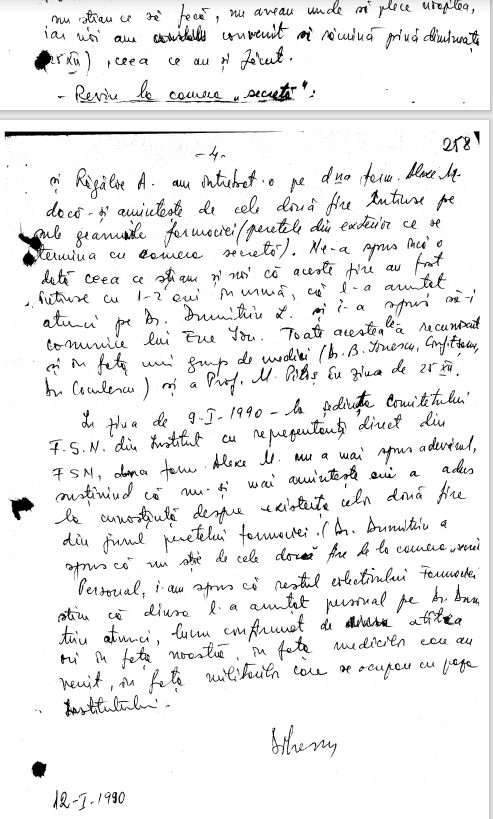 nu știau ce să facă, nu aveau unde să plece noaptea,
iar noi am convenit să rămînă pînă dimineața
(25 XII), ceea ce au și făcut.
- Revin la camera „secretă":
258
- 4 -
și Rîgăloe A. am întrebat-o pe d-na farm. Alexe M.
dacă-și amintește de cele două fire întinse pe
sub geamurile farmaciei (peretele din exterior ce se
termina cu camera secretă). Ne-a spus încă o
dată ceea ce știam și noi că aceste fire au fost
întinse cu 1-2 ani în urmă, că l-a anunțat
atunci pe Dr. Dumitriu L. și i-a spus să-i
comunice lui Ene Ion. Toate acestea le-a recunoscut
și în fața unui grup de medici (Dr. B. Ionescu,
Dr. ) și a Prof. M. în ziua de 25 XII.
În ziua de 9-I-1990 - la ședința Comitetului
F.S.N. din Institut cu reprezentanți direct din
FSN, d-na farm. Alexe M. nu a mai spus adevărul,
susținînd că nu-și mai amintește cui a adus
la cunoștință despre existența celor două fire
din jurul peretelui farmaciei. (Dr. Dumitriu a
spus că nu știe de cele două fire de la camera
Personal, i-am spus că restul colectivului Farmaciei
știm că dînsa l-a anunțat personal pe Dr. Dumi-
triu atunci, lucru confirmat de atîtea
ori în fața noastră, în fața medicilor care au
venit, în fața militarilor care se ocupau cu paza
Institutului.
12-I-1990